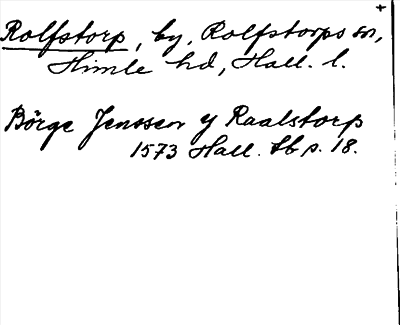 +
Rolfstorp, by, Rolfstorps sn,
Himle hd, Hall. l.
Börge Jenssen y Raalstorp
1573 Hall. Sb p. 18.